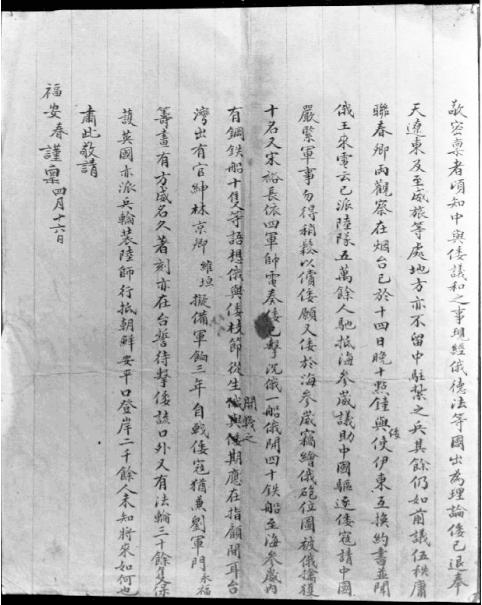 敬密稟者頃知中與倭議和之事現經俄德法等國出為理論倭已退奉
天遼東及至威旅等處地方亦不留中駐紮之兵其餘仍如前議伍秩庸
聯春卿兩觀察在烟台已於十四日晚十點鐘與倭使伊東互換約書並聞
俄王來電云已派陸隊五萬餘人馳抵海參崴議助中國驅逐倭寇請中國
嚴緊軍事勿得稍鬆以償倭願又倭於海參崴竊繪俄砲位圖被俄擒獲
十名又宋裕長依四軍帥電奏倭已擊沉俄一船俄開四十鉄船至海參崴內
有鋼鉄船十隻等語想俄與倭枝節從生俄與倭開戰之期應在指顧間耳台
灣出有官紳林京卿維垣擬備軍餉三年自戰倭寇猶兼劉軍門永福
籌畫有方威名久著刻亦在台誓待擊倭該口外又有法輪三十餘隻保
護英國亦派兵輪裝陸師行抵朝鮮安平口登岸二千餘人未知將來如何也
肅此敬請
福安春謹稟四月十六日